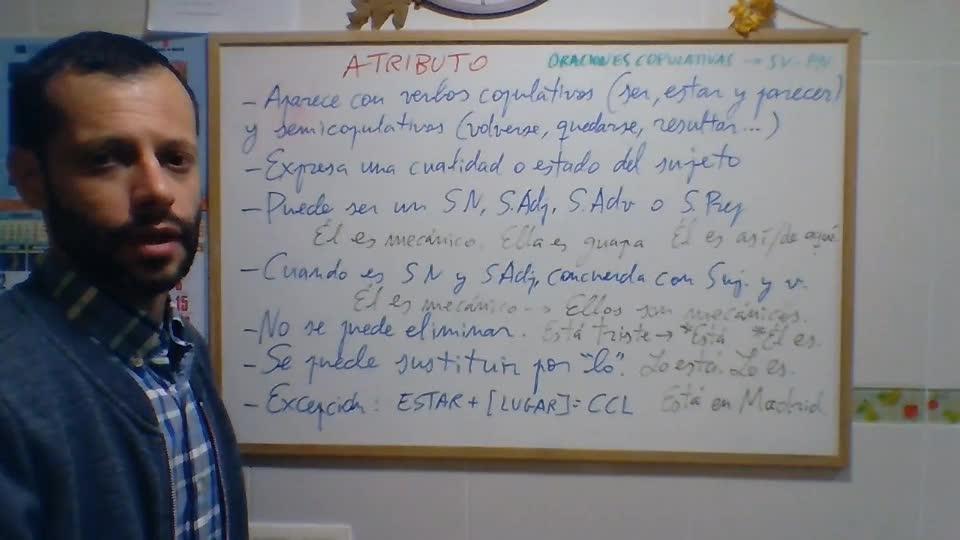 ATRIBUTO ORACIONES COPULATIVAS → SV-PN
- Aparece con verbos copulativos (ser, estar y parecer)
y semicopulativos (volverse, quedarse, resultar...)
- Expresa una cualidad o estado del sujeto
- Puede ser un SN, S.Adj, S.Adv o S.Prep
Él es mecánico. Ella es guapa Él es así/de aquí
- Cuando es SN y SAdj, concuerda con Suj. y v.
Él es mecánico -> Ellos son mecánicos.
- No se puede eliminar. Está triste → *Está *Él es.
- Se puede sustituir por "lo". Lo está. Lo es.
- Excepción: ESTAR + [LUGAR] = CCL Está en Madrid
15